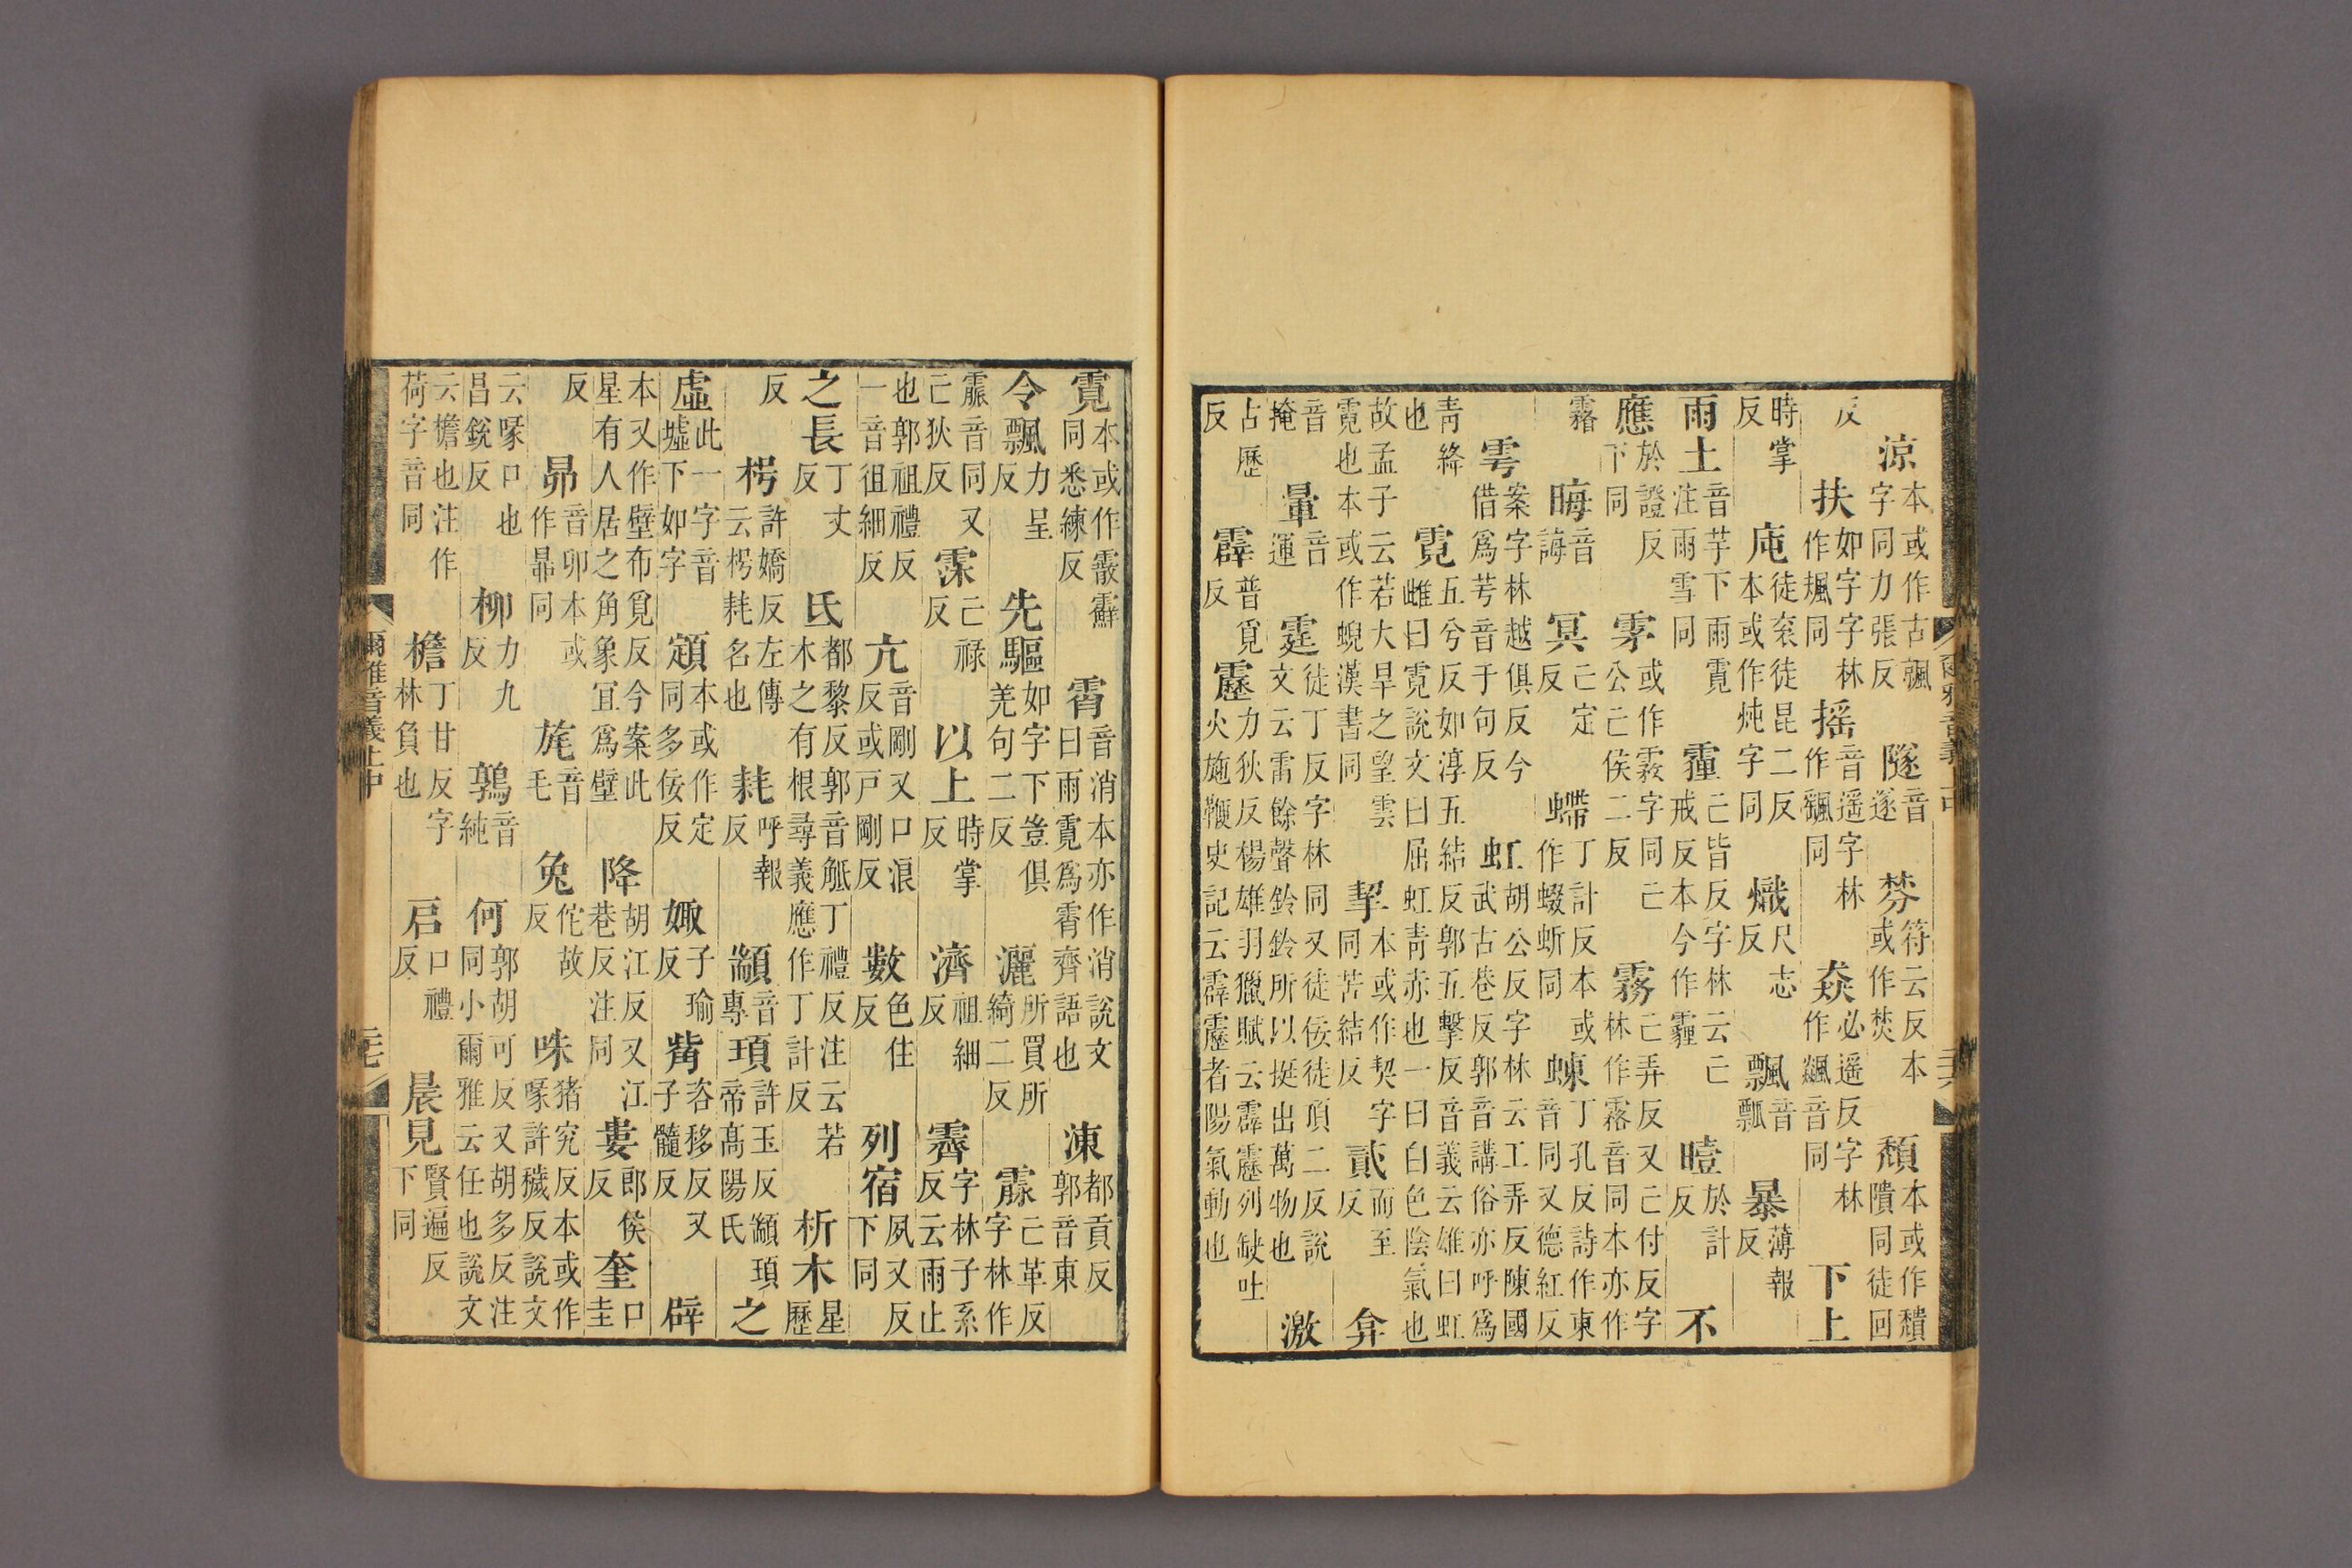 涼本或作古飊字同力張反隧音遂棼符云反本或作焚頹本或作穨隤同徒回
反扶如字字林作颫同摇音遥字林作颻同猋必遥反字林作飆音同下上
時掌反庉徒衮徒昆二反本或作炖字同熾尺志反飄音瓢暴薄報反
雨土音芋下雨霓注雨雪同霾亡皆反字林云亡戒反本今作霾曀於計反不
應於證反下同雺或作霧字同亡公亡侯二反霧亡弄反又亡付反字林作霚音同本亦作
霿晦音誨冥亡定反螮丁計反本或作蝃蜥同蝀丁孔反詩作東音同又德紅反
雩案字林越俱反今借爲芌音于句反虹胡公反字林云工弄反陳國武古巷反郭音講俗亦呼爲
青絳也霓五兮反如淳五結反郭五擊反音義云雄曰虹雌曰霓說文曰屈虹青赤也一曰白色陰氣也
故孟子云若大旱之望雲霓也本或作蜺漢書同挈本或作契字同苦結反貳而至反弇
音掩暈音運霆徒丁反字林同又徒佞徒頂二反說文云雷餘聲鈴鈴所以挺出萬物也激
古歷反霹普覓反靂力狄反楊雄羽獵賦云霹靂列缺吐火施鞭史記云霹靂者陽氣動也
霓本或作霰䨘同悉練反霄音消本亦作消說文曰雨霓爲霄齊語也涷都貢反郭音東
令飄力呈反先驅如字下豈俱羌句二反灑所買所綺二反霡亡革反字林作
霢音同又亡狄反霂亡祿反以上時掌反濟祖細反霽字林子系反云雨止
也郭祖禮反一音徂細反亢音剛又口浪反或戶剛反數色住反列宿夙又反下同
之長丁丈反氐都黎反郭音觝丁禮反注云若木之有根尋義應作丁計反析木星歷
反枵許嬌反左傳云枵耗名也耗呼報反顓音專頊許玉反顓頊帝高陽氏之
虛此一字音墟下如字顁本或作定同多佞反娵子瑜反觜咨移反又子髓反辟
本又作壁布覓反今案此星有人居之角象宜爲壁降胡江反又江巷反注同婁郎侯反奎口圭
反昴音卯本或作㫳同旄音毛兔佗故反咮猪究反本或作喙許穢反說文
云喙口也昌銳反柳力九反鶉音純何郭胡可反又胡多反注同小爾雅云任也說文
云檐也注作荷字音同檐丁甘反字林負也启口禮反晨見賢遍反下同
爾雅音義上中